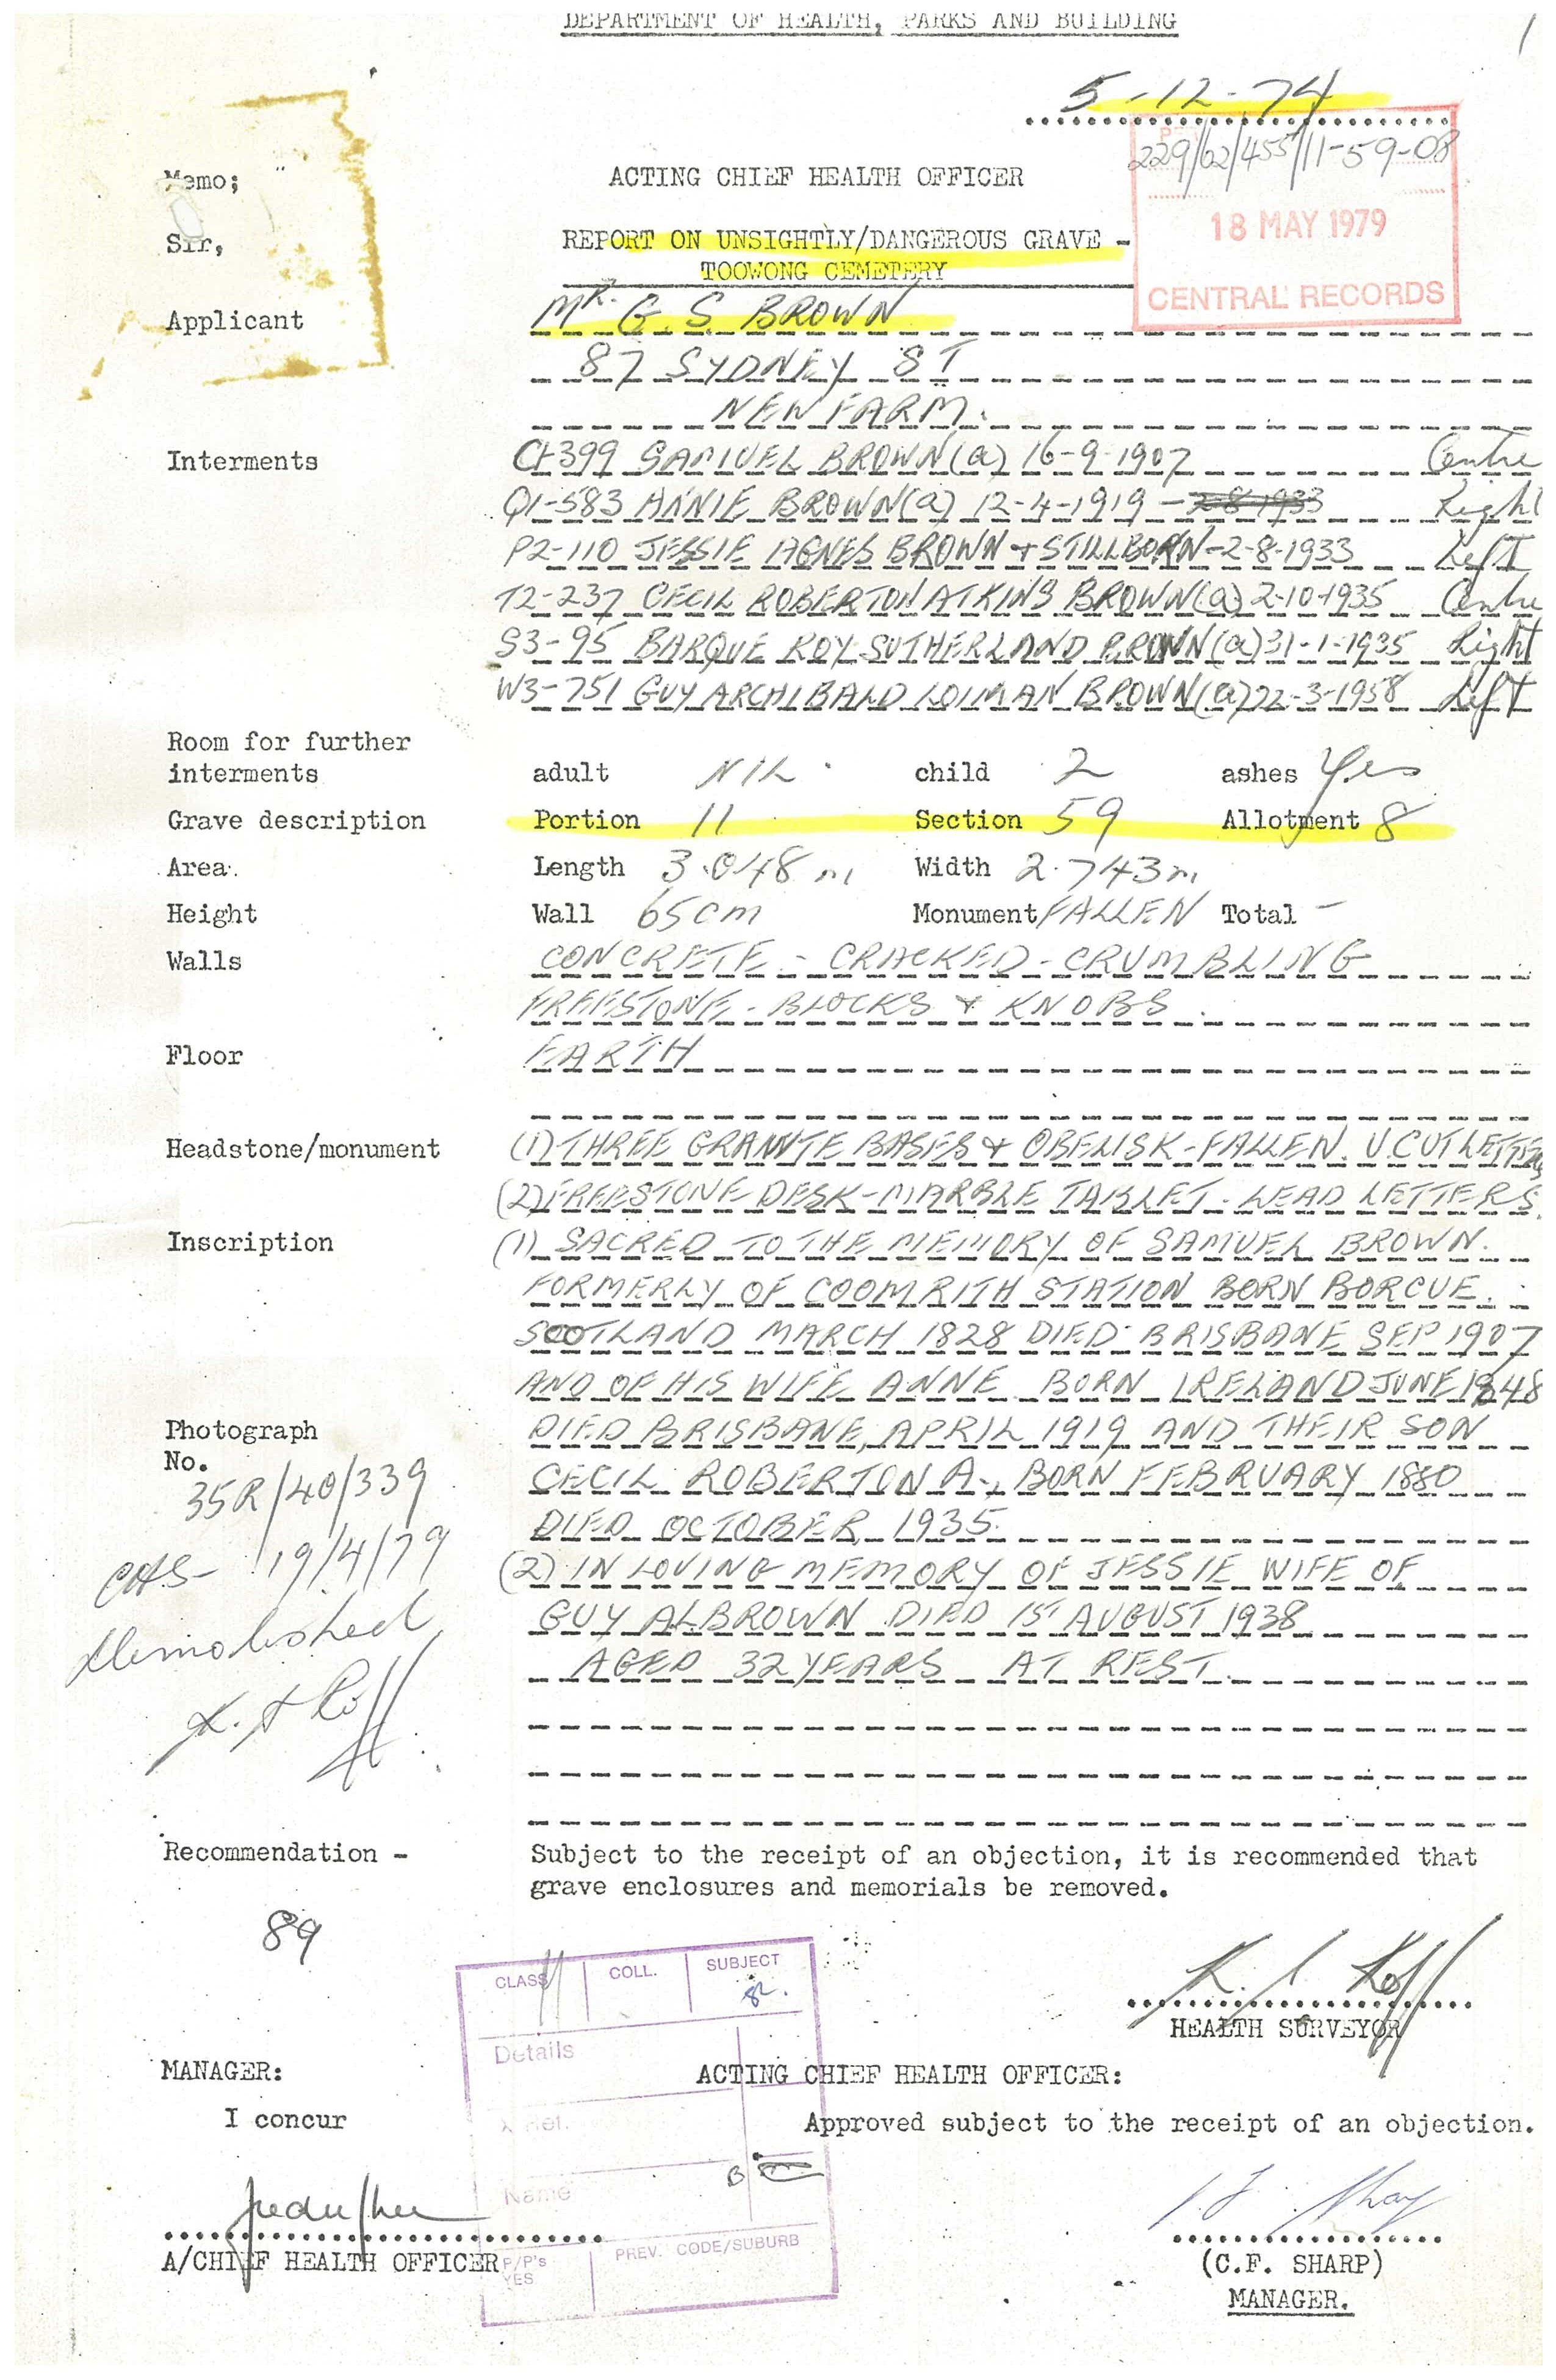 DEPARTMENT OF HEALTH, PARKS AND BUILDING
5-12-74
229/62/455/11-59-08
18 MAY 1979
CENTRAL RECORDS
Memo;
ACTING CHIEF HEALTH OFFICER
Sir,
REPORT ON UNSIGHTLY/DANGEROUS GRAVE -
TOOWONG CEMETERY
Applicant MR. G. S. BROWN
87 SYDNEY ST
NEW FARM.
Interments 399 SAMUEL BROWN (a) 16-9-1907 Centre
Q1-583 ANNIE BROWN (a) 12-4-1919 - 2-8-1933 Right
P2-110 JESSIE AGNES BROWN + STILLBORN - 2-8-1933 Left
T2-237 CECIL ROBERTON ATKINS BROWN (a) 2-10-1935 Centre
S3-95 BARQUE ROY SUTHERLAND BROWN (a) 31-1-1935 Right
W3-751 GUY ARCHIBALD LOIMAN BROWN (a) 22-3-1958 Left
Room for further
interments adult NIL child 2 ashes Yes
Grave description Portion 11 Section 59 Allotment 8
Area Length 3.048 m Width 2.743 m
Height Wall 65 cm Monument FALLEN Total -
Walls CONCRETE - CRACKED - CRUMBLING
FREESTONE - BLOCKS & KNOBS.
Floor EARTH
Headstone/monument (1) THREE GRANITE BASES & OBELISK - FALLEN. V. CUT LETTERS
(2) FREESTONE DESK - MARBLE TABLET - LEAD LETTERS.
Inscription (1) SACRED TO THE MEMORY OF SAMUEL BROWN.
FORMERLY OF COOMRITH STATION BORN BORCUE.
SCOTLAND MARCH 1828 DIED BRISBANE SEP 1907
AND OF HIS WIFE ANNE BORN IRELAND JUNE 1848
DIED BRISBANE, APRIL 1919 AND THEIR SON
CECIL ROBERTON A., BORN FEBRUARY 1880
DIED OCTOBER, 1935.
(2) IN LOVING MEMORY OF JESSIE WIFE OF
GUY AL BROWN DIED 1ST AUGUST 1938
AGED 32 YEARS AT REST.
Photograph
No.
35R/40/339
19/4/79
Demolished
Recommendation - Subject to the receipt of an objection, it is recommended that
grave enclosures and memorials be removed.
89
HEALTH SURVEYOR
CLASS COLL. SUBJECT
Details
X Ref.
Name
P/P's
YES
PREV. CODE/SUBURB
MANAGER: ACTING CHIEF HEALTH OFFICER:
I concur Approved subject to the receipt of an objection.
A/CHIEF HEALTH OFFICER
(C.F. SHARP)
MANAGER.